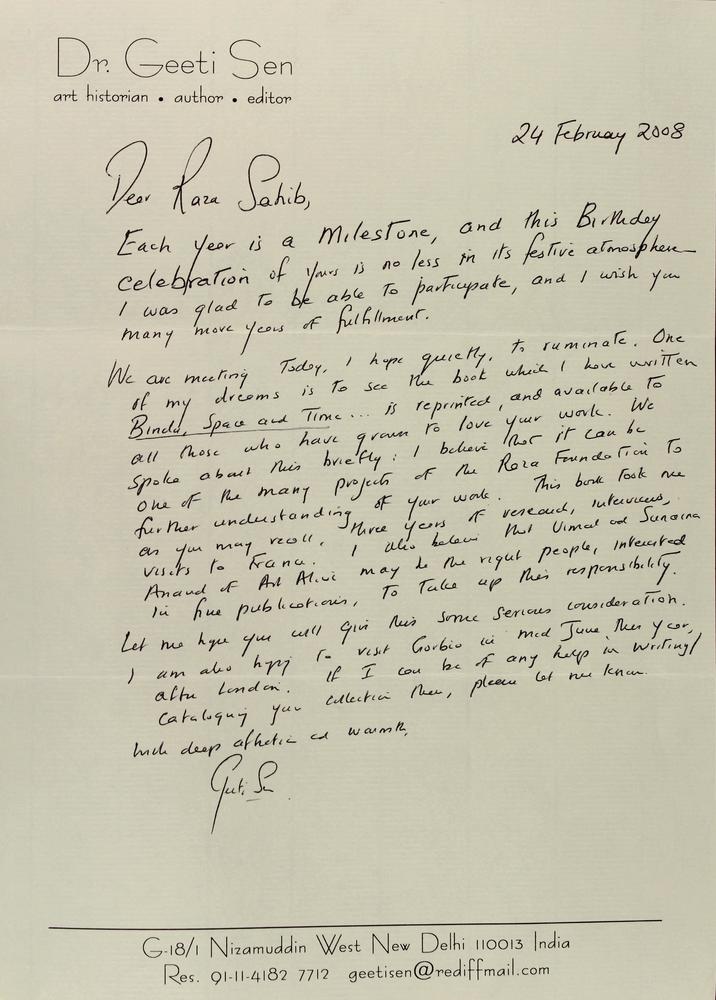 Dr. Geeti Sen
art historian • author • editor
24 February 2008
Dear Raza Sahib,
Each year is a Milestone, and this Birthday
celebration of yours is no less in its festive atmosphere
I was glad to be able to participate, and I wish you
many more years of fulfillment.
We are meeting Today, I hope quietly, to ruminate. One
of my dreams is to see the book which I have written
Bindu, Space and Time... is reprinted, and available to
all those who have grown to love your work. We
spoke about this briefly: I believe that it can be
one of the many projects of the Raza Foundation to
further understanding of your work. This book took me
as you may recall, three years of research, interviews,
visits to France. I also believe that Vimal and Sunaina
Anand of Art Alive may be the right people, interested
in fine publications, to take up this responsibility.
Let me hope you will give this some serious consideration.
I am also hoping to visit Gorbio in mid June this year,
after London. If I can be of any help in writing/
cataloguing your collection there, please let me know.
With deep affection and warmth,
Geeti Sen
G-18/1 Nizamuddin West New Delhi 110013 India
Res. 91-11-4182 7712 geetisen@rediffmail.com